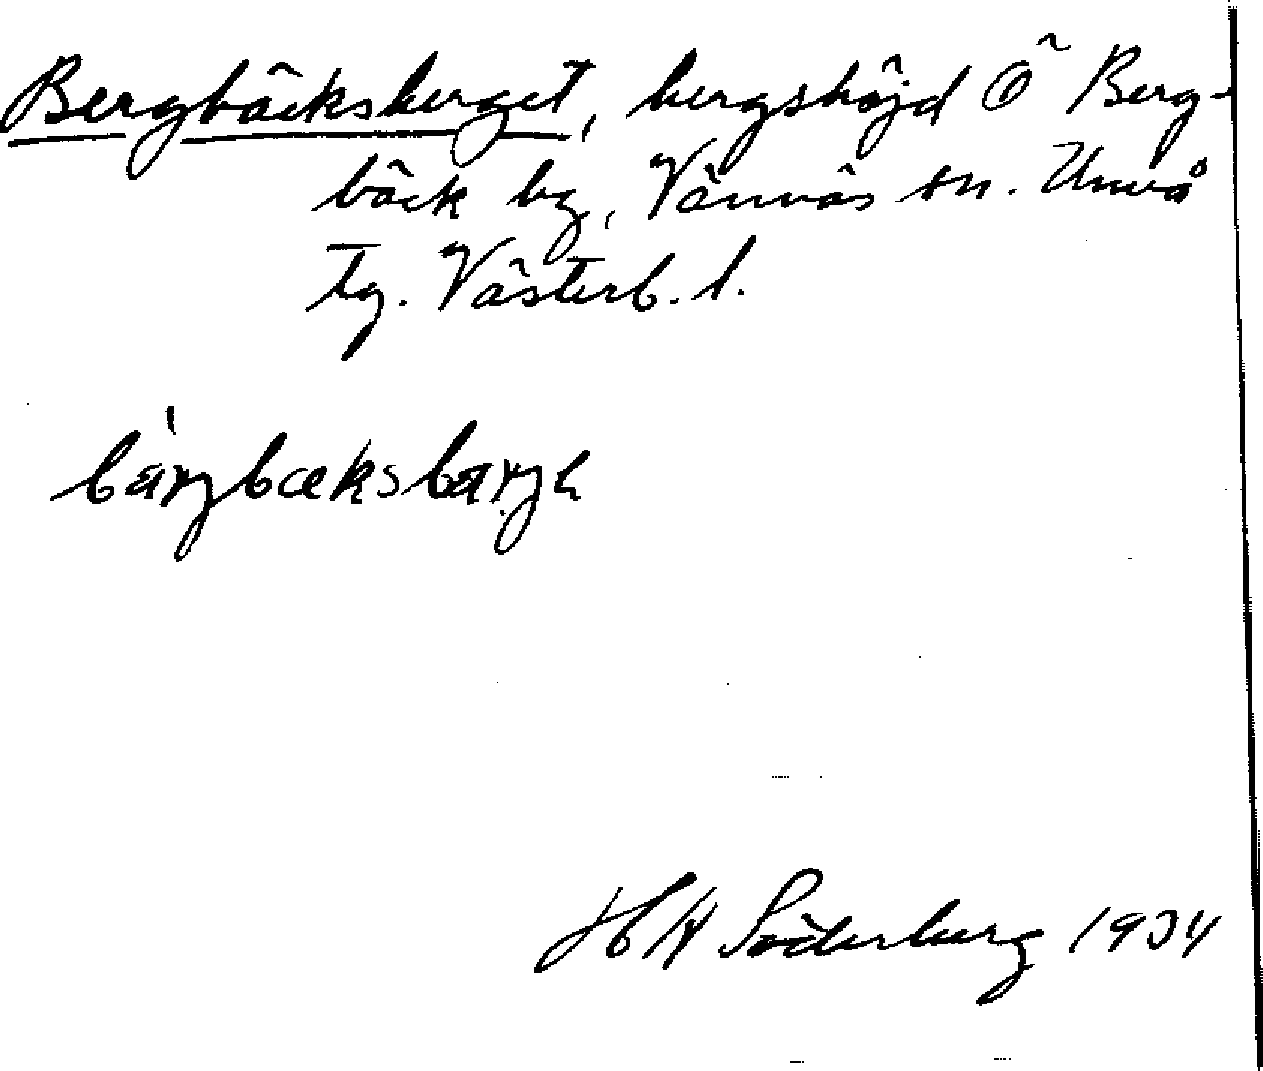 Bergbäcksberget, bergshöjd Ö Berg-
bäck by, Vännäs sn. Umeå
tg. Västerb. l.
bàrjbæksbarjə
H Söderberg 1934